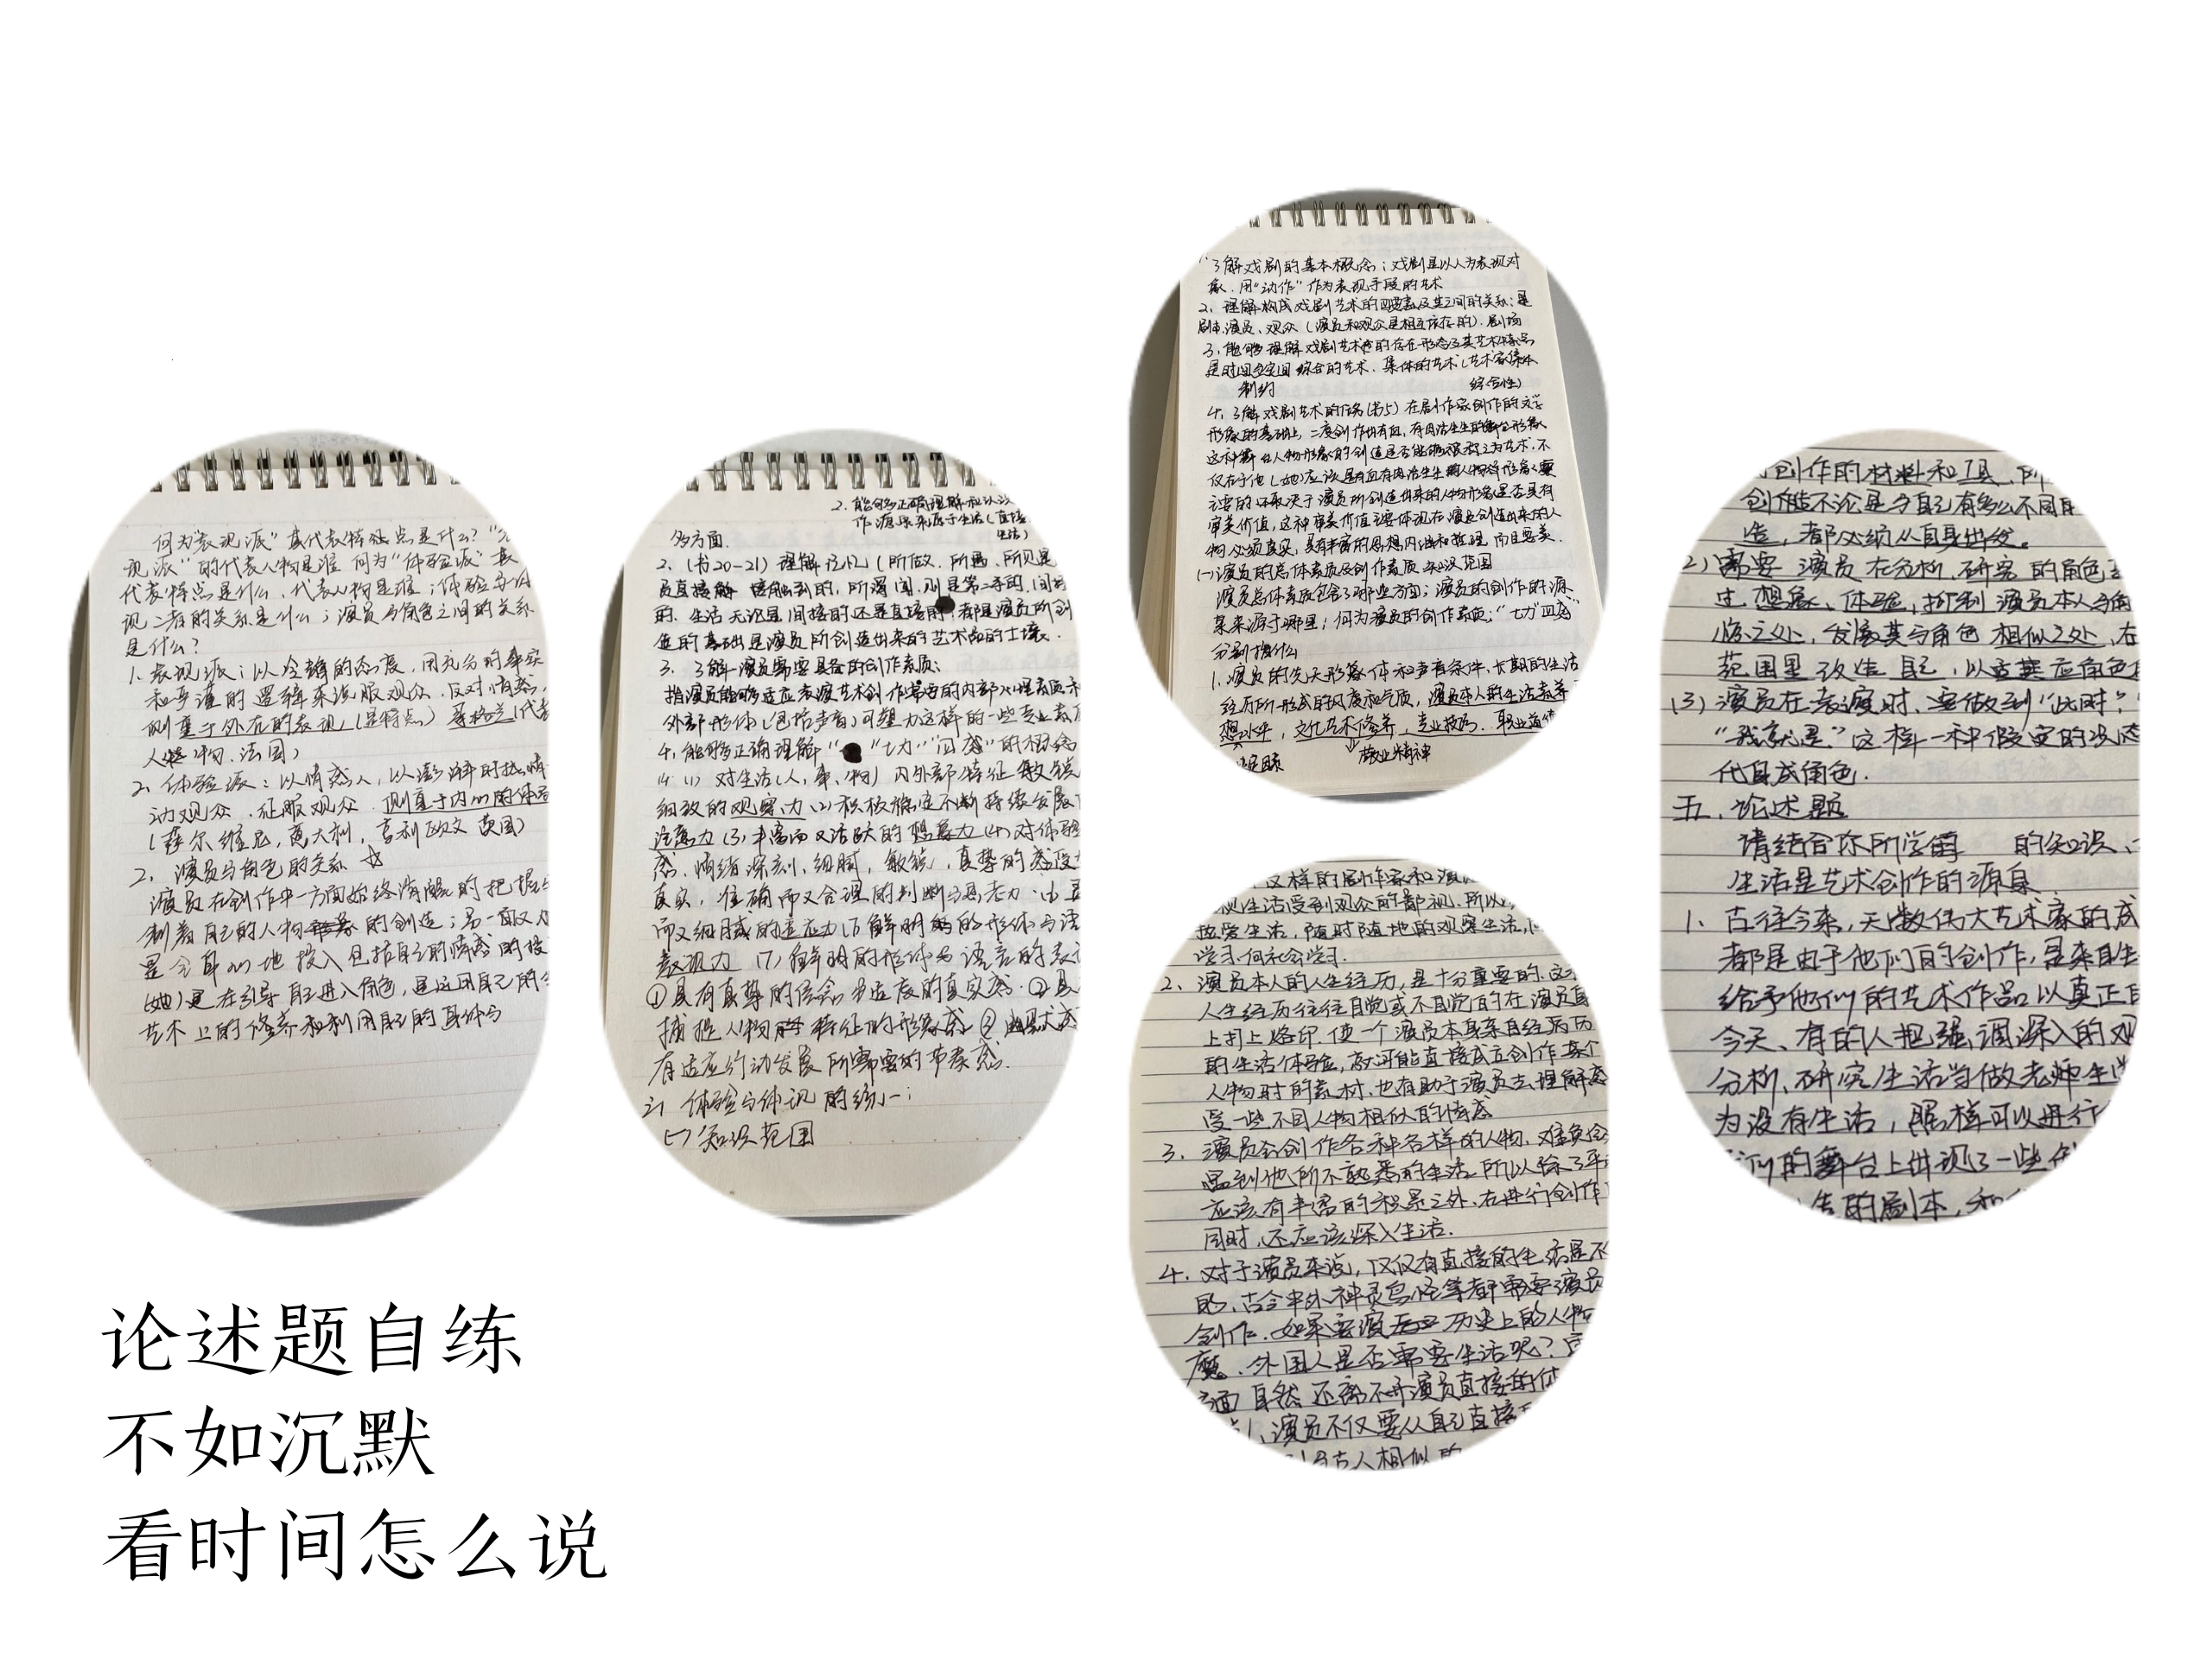 何为"表现派"其代表特征点是什么?"
现派"的代表人物是谁 何为"体验派"其
代表特点是什么,代表人物是谁;体验与
现二者的关系是什么;演员与角色之间的关系
是什么?
1. 表现派:以冷静的态度,用充分的事实
和严谨的逻辑来说服观众,反对情感,
侧重于外在的表现(是特点)哥格兰(代表
人物.法国)
2. 体验派:以情感人,以澎湃的热情
动观众,征服观众.侧重于内心的体
(萨尔维尼,意大利,亨利欧文 英国)
2. 演员与角色的关系
演员在创作中一方面始终清醒的把握
制着自己的人物的创造;另一面又
是全身心地投入包括自己的情感的投
(她)是在引导自己进入角色,是运用自己的
艺术上的修养和利用自己的身体与
2. 能够正确理解和认识
作源泉来源于生活(直接
生活)
多方面.
2. (书20-21) 理解 记忆 (所做.所遇.所见是
员直接接触到的,所谓闻.则是第二手的,间接
的.生活无论是间接的还是直接的,都是演员所创
造的基础是演员所创造出来的艺术品的土壤.
3. 了解演员需要具备的创作素质:
指演员能够适应表演艺术创作需要的内部心理素质和
外部形体(包括声音)可塑力这样的一些专业素
4. 能够正确理解"七力""四感"的概念
(1) 对生活(人、事、物)内外部特征敏锐
细致的观察力(2)积极稳定不断持续发展
注意力(3)丰富而又活跃的想象力(4)对体验
感,情绪深刻,细腻,敏锐,真挚的感受
真实,准确而又合理的判断与思考力
而又细腻的适应力 鲜明的形体与语
表现力 (7) 鲜明的形体与语言的表
①具有真挚的信念与适度的真实感.②具
捕捉人物特征的形象感 ③幽默感
有适应行动发展所需要的节奏感.
三、体验与体现的统一:
(一)知识范围
1.了解戏剧的基本概念;戏剧是以人为表现对
象.用"动作"作为表现手段的艺术
2. 理解构成戏剧艺术的四要素及其之间的关系:是
剧本.演员、观众(演员和观众是相互依存的).剧场
3. 能够理解戏剧艺术的存在形态及其艺术特点
是时间与空间综合的艺术.集体的艺术(艺术家集体
制约 综合性)
4. 了解戏剧艺术的任务(书5)在剧作家创作的文学
形象的基础上,二度创作出有血,有肉活生生的舞台形象
这种舞台人物形象的创造是否能够被称之为艺术.不
仅在于他(她)应该是有血有肉活生生的人物形象更
主要的还取决于演员所创造出来的人物形象是否具有
审美价值,这种审美价值主要体现在演员创造出来的人
物必须真实,具有丰富的思想内涵和哲理,而且要美.
(一)演员的总体素质及创作素质 知识范围
演员总体素质包含了哪些方面;演员的创作的源
泉来源于哪里;何为演员的创作素质;"七力四感"
分别指什么
1. 演员的先天形象、体和声音条件.长期的生活
经历所形成的风度和气质,演员本人的生活素养
想水平,文化艺术修养,专业技巧.职业道德
敬业精神
这样的剧作家和演
现生活受到观众的鄙视.所以
热爱生活,随时随地的观察生活,
学习.向社会学习.
2. 演员本人的人生经历,是十分重要的.这
人生经历往往自觉或不自觉的在演员
上打上烙印.使一个演员本身亲自经历
的生活体验,都可能直接成立创作某个
人物时的素材.也有助于演员去理解感
受一些不同人物相似的情感
3. 演员会创作各种各样的人物.难免会
遇到他所不熟悉的生活.所以除了平
应该有丰富的积累之外.在进行创作
同时,还应该深入生活.
4. 对于演员来说,仅仅有直接的生活是不
的.古今中外神灵鸟怪等都需要演员
创作.如果要演历史上的人物
魔、外国人是否需要生活呢?
面 自然还离不开演员直接的体
演员不仅要从自己直接
与古人相似的
创作的材料和工具.所
创作不论是与自己有多么不同
造,都必须从自身出发.
2)需要演员在分析.研究的角色
过想象、体验,抑制演员本人与角
临之处,发展其与角色相似之处,在
范围里改造自己,以适应角色
(3)演员在表演时.要做到"此时?
"我就是"这样一种假定的状态
代自我角色.
五.论述题
请结合你所学的知识、
生活是艺术创作的源泉
1. 古往今来,无数伟大艺术家的成
都是由于他们的创作,是来自生
给予他们的艺术作品以真正
今天、有的人把强调深入的观
分析、研究生活当做老师生
为没有生活,照样可以进行
们的舞台上出现了一些
造的剧本,和
论述题自练
不如沉默
看时间怎么说